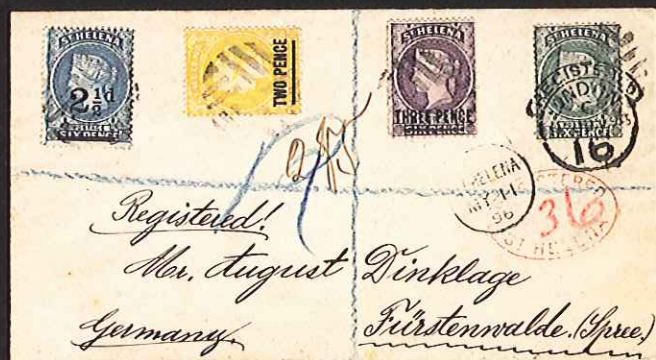 ST HELENA
2½d
POSTAGE
SIX PENCE
TWO PENCE
ST HELENA
THREE PENCE
SIX PENCE
ST HELENA
SIX PENCE
REGISTERED
LONDON
16
HELENA
MY 21
96
REGISTERED
36
ST HELENA
R
Registered!
Mr. August Dinklage
Germany. Fürstenwalde. (Spree.)